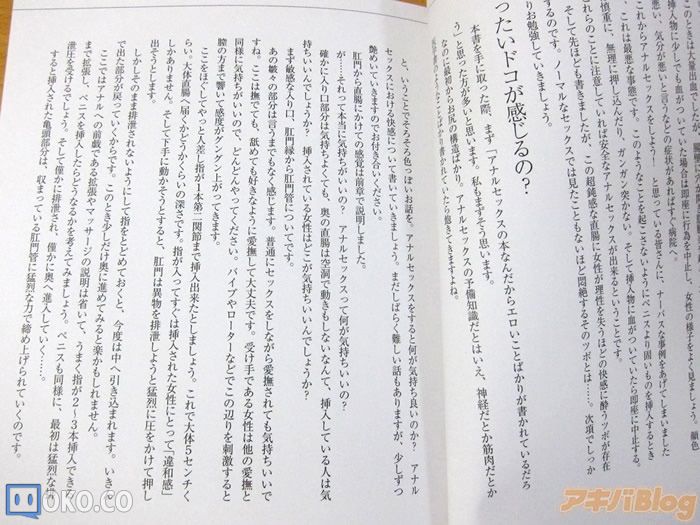 に大量出血
挿入物に少しでも血がついていた場合は即座に行為を中止し、女性の様子をよく見ましょう。顔色が
悪い、気分が悪いと言うなどの症状があればすぐ病院へ。
これからアナルセックスをしよう！　と思っている皆さんに、ナーバスな事例をあげてしまいました
が、これは最悪な事態です。このようなことを起こさないようにペニスより固いものを挿入するとき
は慎重に、無理に押し込んだり、ガンガン突かない。そして挿入物に血がついていたら即座に中止する。
これらのことに注意していれば安全なアナルセックスが出来るということです。
そして先ほども書きましたが、この超鈍感な直腸に女性が理性を失うほどの快感に酔うツボが存在
するのです。ノーマルなセックスでは見たこともないほど悶絶するそのツボとは……。次項でしっか
りお勉強していきましょう。
ったいドコが感じるの？
本書を手に取った際、まず「アナルセックスの本なんだからエロいことばかりが書かれているんだろ
う」と思った方が多いと思います。私もまずそう思います。
なのに最初からお尻の構造ばかり。アナルセックスの予備知識だとはいえ、神経だとか筋肉だとか
ばかり書かれていたら飽きてきますよね。
と、いうことでそろそろ色っぽいお話を。アナルセックスをすると何が気持ち良いのか？　アナル
セックスにおける快感について書いていきましょう。まだしばらく難しい話もありますが、少しずつ
艶めいていきますのでお付き合いください。
肛門から直腸にかけての感覚は前章で説明しました。
が……それって本当に気持ちがいいの？　アナルセックスって何が気持ちいいの？
確かに入り口部分は気持ちよくても、奥の直腸は空洞で動きもしないなんて、挿入している人は気
持ちいいんでしょうか？　挿入されている女性はどこが気持ちいいんでしょうか？
まず敏感な入り口、肛門縁から肛門管についてです。
あの皺々の部分は言うまでもなく感じます。普通にセックスをしながら愛撫されても気持ちいいで
すね。ここは撫でても、舐めても好きなように愛撫して大丈夫です。受け手である女性は他の愛撫と
同様に気持ちがいいので、どんどんやってください。バイブやローターなどでこの辺りを刺激すると
膣の方まで響いて感度がグングン上がってきます。
ここをほぐしてやっと人差し指が１本第二関節まで挿入出来たとしましょう。これで大体５センチく
らい。大体直腸へ届くかどうかくらいの深さです。指が入ってすぐは挿入された女性にとって「違和感」
しかありません。そして下手に動かそうとすると、肛門は異物を排泄しようと猛烈に圧をかけて押し
出そうとします。
しかしそのまま排泄されないようにして指をとどめておくと、今度は中へ引き込まれます。いきん
で出た部分が戻っていくからです。このとき少しだけ奥に進めてみると楽かもしれません。
ここではアナルへの前戯である拡張やマッサージの説明は省いて、うまく指が２～３本挿入でき
まで拡張し、ペニスを挿入したらどうなるかを考えてみましょう。ペニスも同様に、最初は猛烈な排
泄圧を受けるでしょう。そして僅かに排泄され、僅かに奥へ進入していく……。
すると挿入された亀頭部分は、収まっている肛門管に猛烈な力で締め上げられていくのです。
MOKO.CO
アキバBlog